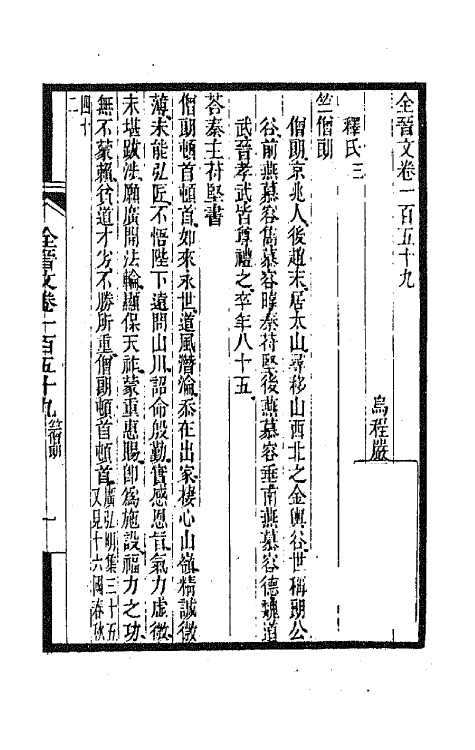 全晉文卷一百五十九
烏程嚴
釋氏三
竺僧朗
僧朗京兆人後趙末居太山尋移山西北之金輿谷世稱朗公
谷前燕慕容儁慕容暐秦苻堅後燕慕容垂南燕慕容德魏道
武晉孝武皆尊禮之卒年八十五
荅秦主苻堅書
僧朗頓首頓首如來永世道風潛淪忝在出家棲心山嶺精誠微
薄未能弘匠不悟陛下遠問山川詔命殷勤實感恩旨氣力虛微
未堪跋涉願廣開法輪顯保天祚蒙重惠賜卽爲施設福力之功
無不蒙賴貧道才劣不勝所重僧朗頓首頓首廣弘明集三十五
又見十六國春秋
四十
二
全晉文卷一百五十九 竺僧朗 一